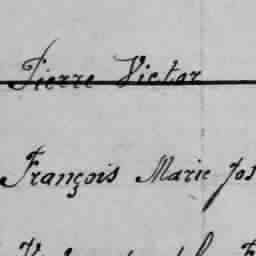 Pierre Victor
François Marie Jos